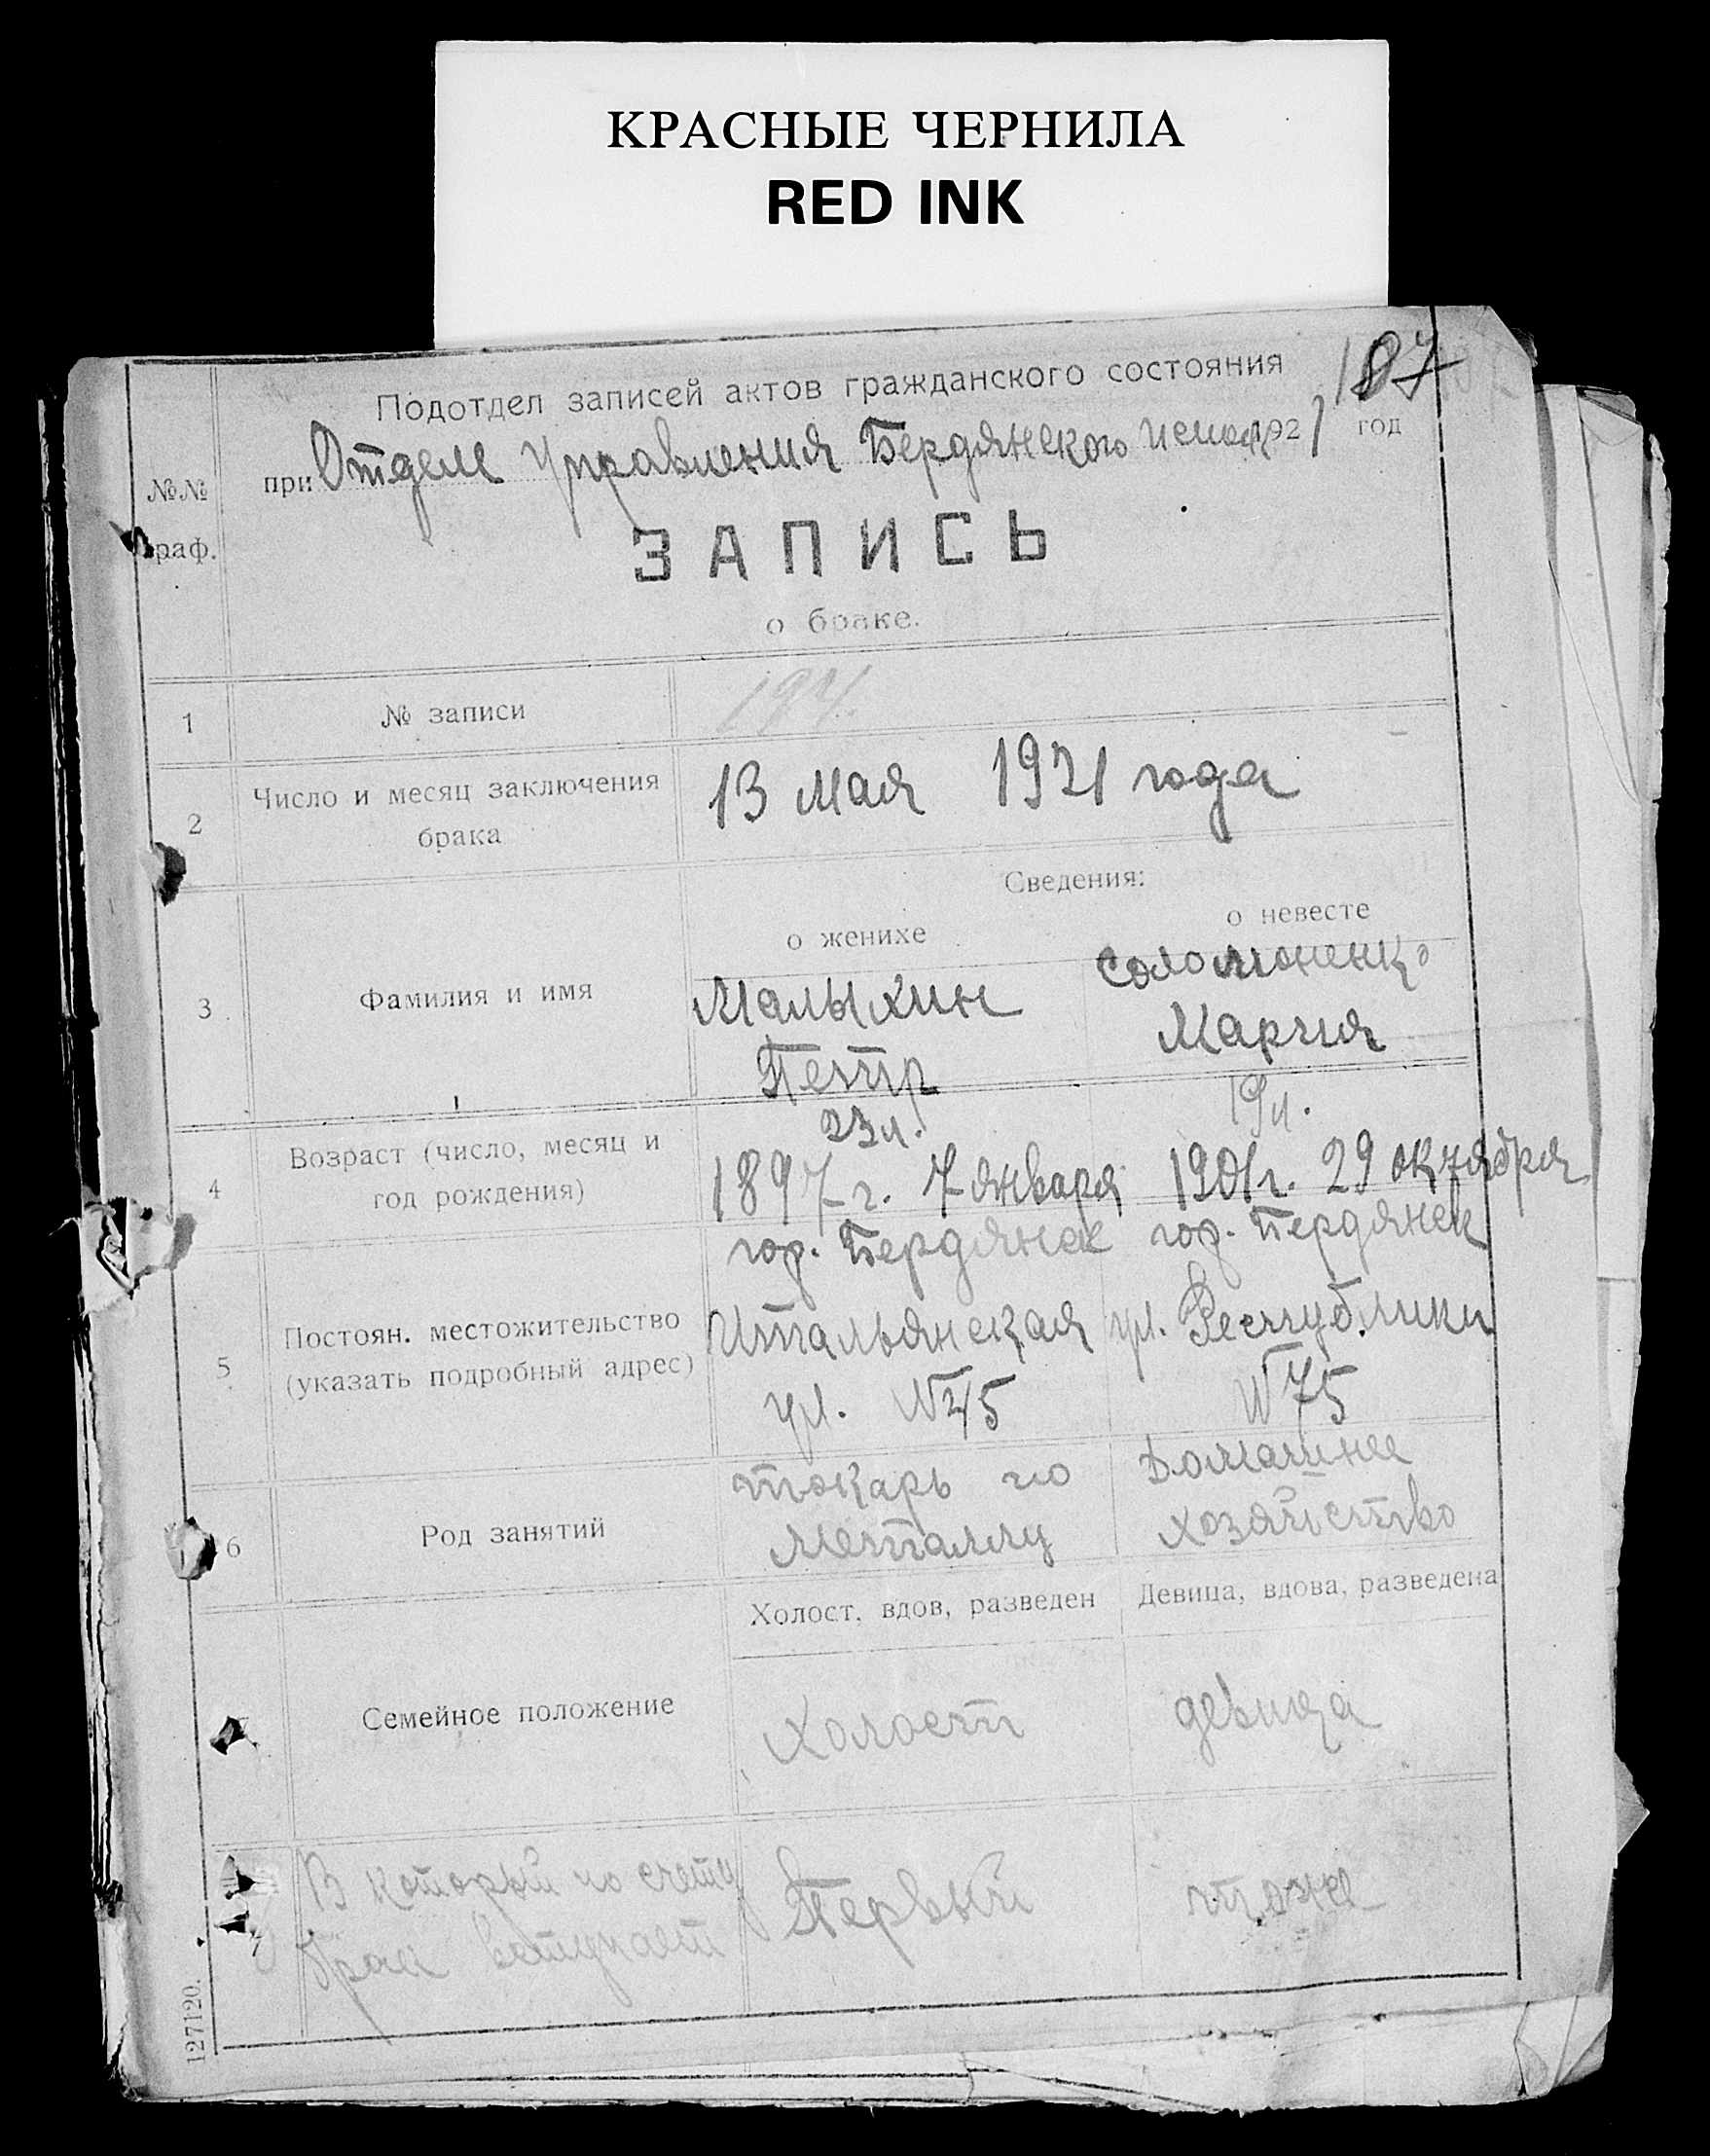 КРАСНЫЕ ЧЕРНИЛА
RED INK
187
Подотдел записей актов гражданского состояния
при Отделе Управления Бердянского 1921 год
№№
граф.
ЗАПИСЬ
о браке.
1 № записи
2 Число и месяц заключения
брака
13 мая 1921 года
Сведения:
о женихе о невесте
3 Фамилия и имя
Малыхин Соломоненко
Петр Мария
23 л. 19 л.
4 Возраст (число, месяц и
год рождения)
1897 г. 7 января 1901 г. 29 октября
гор. Бердянск гор. Бердянск
5 Постоян. местожительство
(указать подробный адрес)
Итальянская ул. Республики
ул. №45 №75
6 Род занятий
токарь по Домашнее
металлу хозяйство
Холост, вдов, разведен Девица, вдова, разведена
Семейное положение
холост девица
В который по счету
брак вступает
Первый тоже
127120.